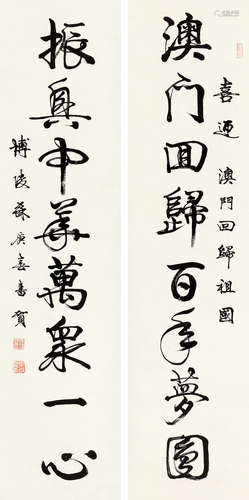 喜迎澳門回歸祖國
澳門回歸百年夢圓
振興中華萬眾一心
博陵蘇庚春書賀